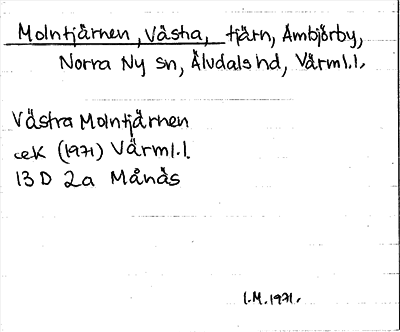 Molntjärnen, Västra, tjärn, Ambjörby,
Norra Ny sn, Älvdals hd, Värml.l.
Västra Molntjärnen
eK (1971) Värml.l.
13 D 2a Månäs
I.M. 1971.